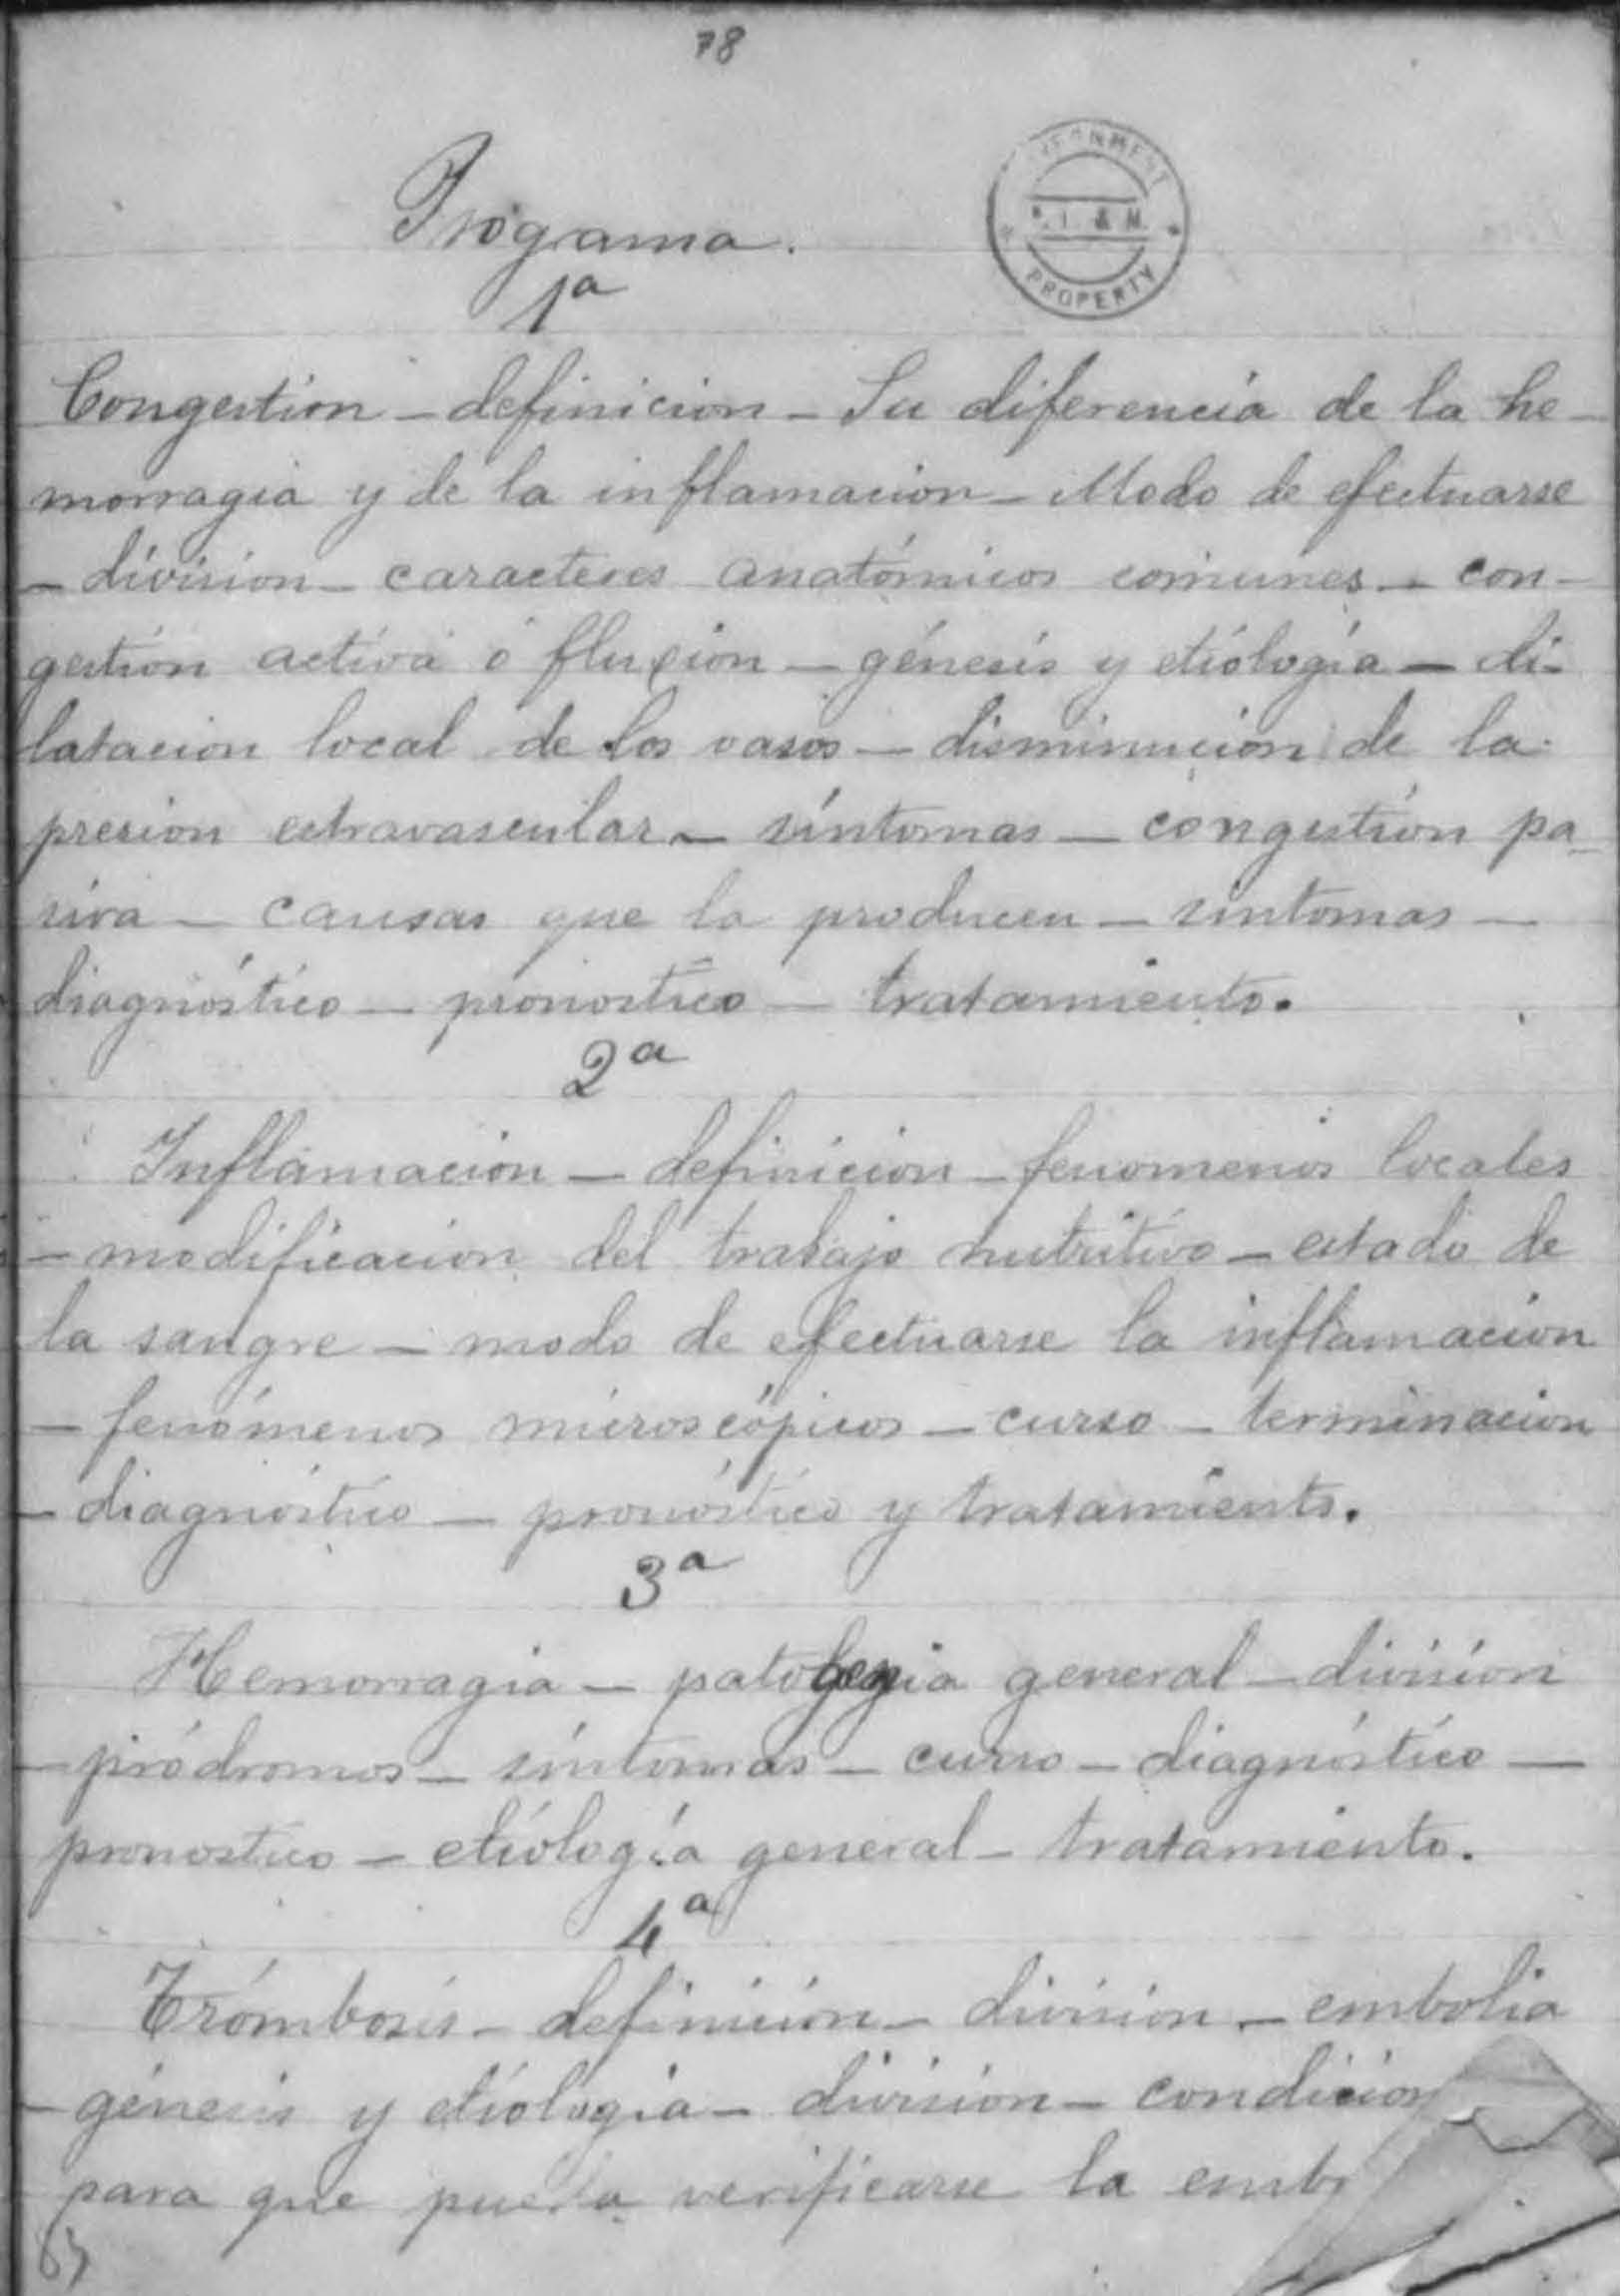 78
Programa.
1ª
Congestión - definicion - Su diferencia de la he-
morragia y de la inflamacion - Modo de efectuarse
- división - caracteres anatómicos comunes - con-
gestión activa ó fluxion - génesis y etiología - di-
latacion local de los vasos - disminucion de la
presion extravascular - síntomas - congestión pa-
siva - causas que la producen - sintomas -
diagnóstico - pronostico - tratamiento.
2ª
Inflamacion - definicion - fenomenos locales
- modificacion del trabajo nutritivo - estado de
la sangre - modo de efectuarse la inflamacion
- fenómenos microscópicos - curso - terminacion
- diagnóstico - pronóstico y tratamiento.
3ª
Hemorragia - patogenia general - división
- pródromos - síntomas - curso - diagnóstico -
pronostico - etiología general - tratamiento.
4ª
Trómbosis - definición - division - embolia
- génesis y etiólogia - division - condicion
para que pueda verificarse la emb
PROPERTY